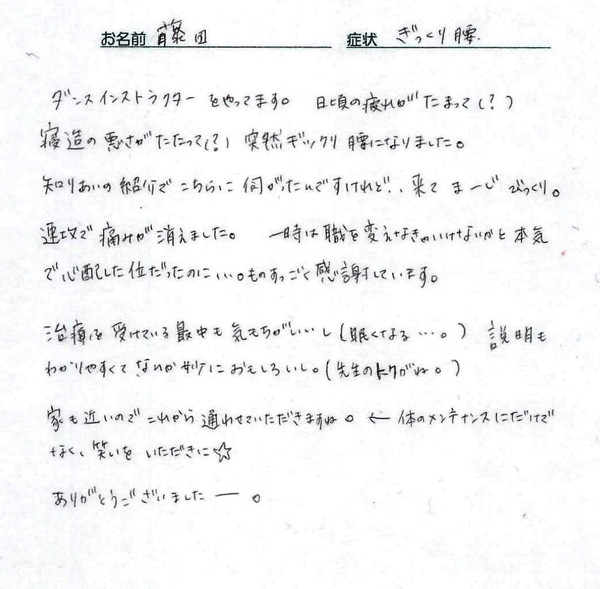 お名前 藤田 症状 ぎっくり腰.
ダンスインストラクターをやってます。 日頃の疲れがたまって(?)
寝造の悪さがたたって(?) 突然ギックリ腰になりました。
知りあいの紹介でこちらに伺がったんですけれど、来てまーじびっくり。
速攻で痛みが消えました。 一時は職を変えなきゃいけないかと本気
で心配した位だったのに…。ものすっごく感謝しています。
治療を受けている最中も気もちがいいし(眠くなる…。) 説明も
わかりやすくてなにか妙におもしろいし。(先生のトークがね。)
家も近いのでこれから通わせていただきますね。 ← 体のメンテナンスにだけで
なく、笑いをいただきに☆
ありがとうございましたー。